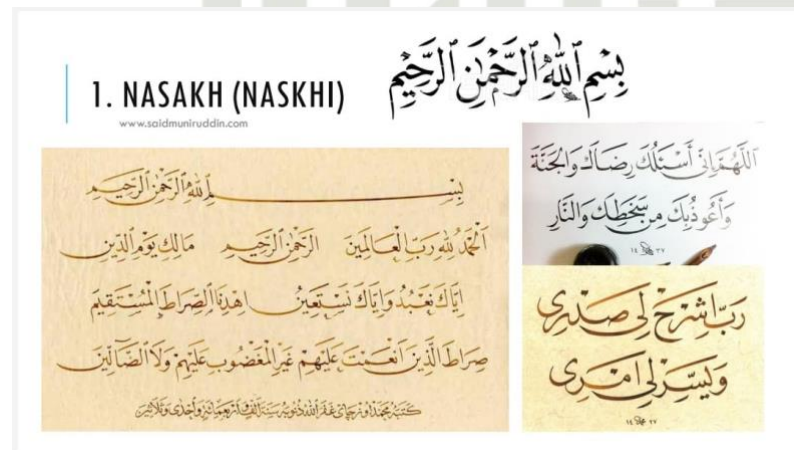 1. NASAKH (NASKHI)
www.saidmuniruddin.com
بِسْمِ ٱللَّهِ ٱلرَّحْمَٰنِ ٱلرَّحِيمِ
بسم الله الرحمن الرحيم
اَلْحَمْدُ لِلّٰهِ رَبِّ الْعَالَمِينَ الرَّحْمٰنِ الرَّحِيمِ مَالِكِ يَوْمِ الدِّينِ
اِيَّاكَ نَعْبُدُ وَاِيَّاكَ نَسْتَعِينُ اِهْدِنَا الصِّرَاطَ الْمُسْتَقِيمَ
صِرَاطَ الَّذِينَ اَنْعَمْتَ عَلَيْهِمْ غَيْرِ الْمَغْضُوبِ عَلَيْهِمْ وَلَا الضَّالِّينَ
كتبه محمد غفر الله ذنوبه سنة الف واربعمائة واحدى وثلاثين
اَللّٰهُمَّ اِنِّي أَسْئَلُكَ رِضَاكَ وَالْجَنَّةَ
وَأَعُوذُ بِكَ مِنْ سَخَطِكَ وَالنَّارِ
١٤ ٣٧
رَبِّ اشْرَحْ لِى صَدْرِى
وَيَسِّرْ لِى اَمْرِى
١٤ ٣٧